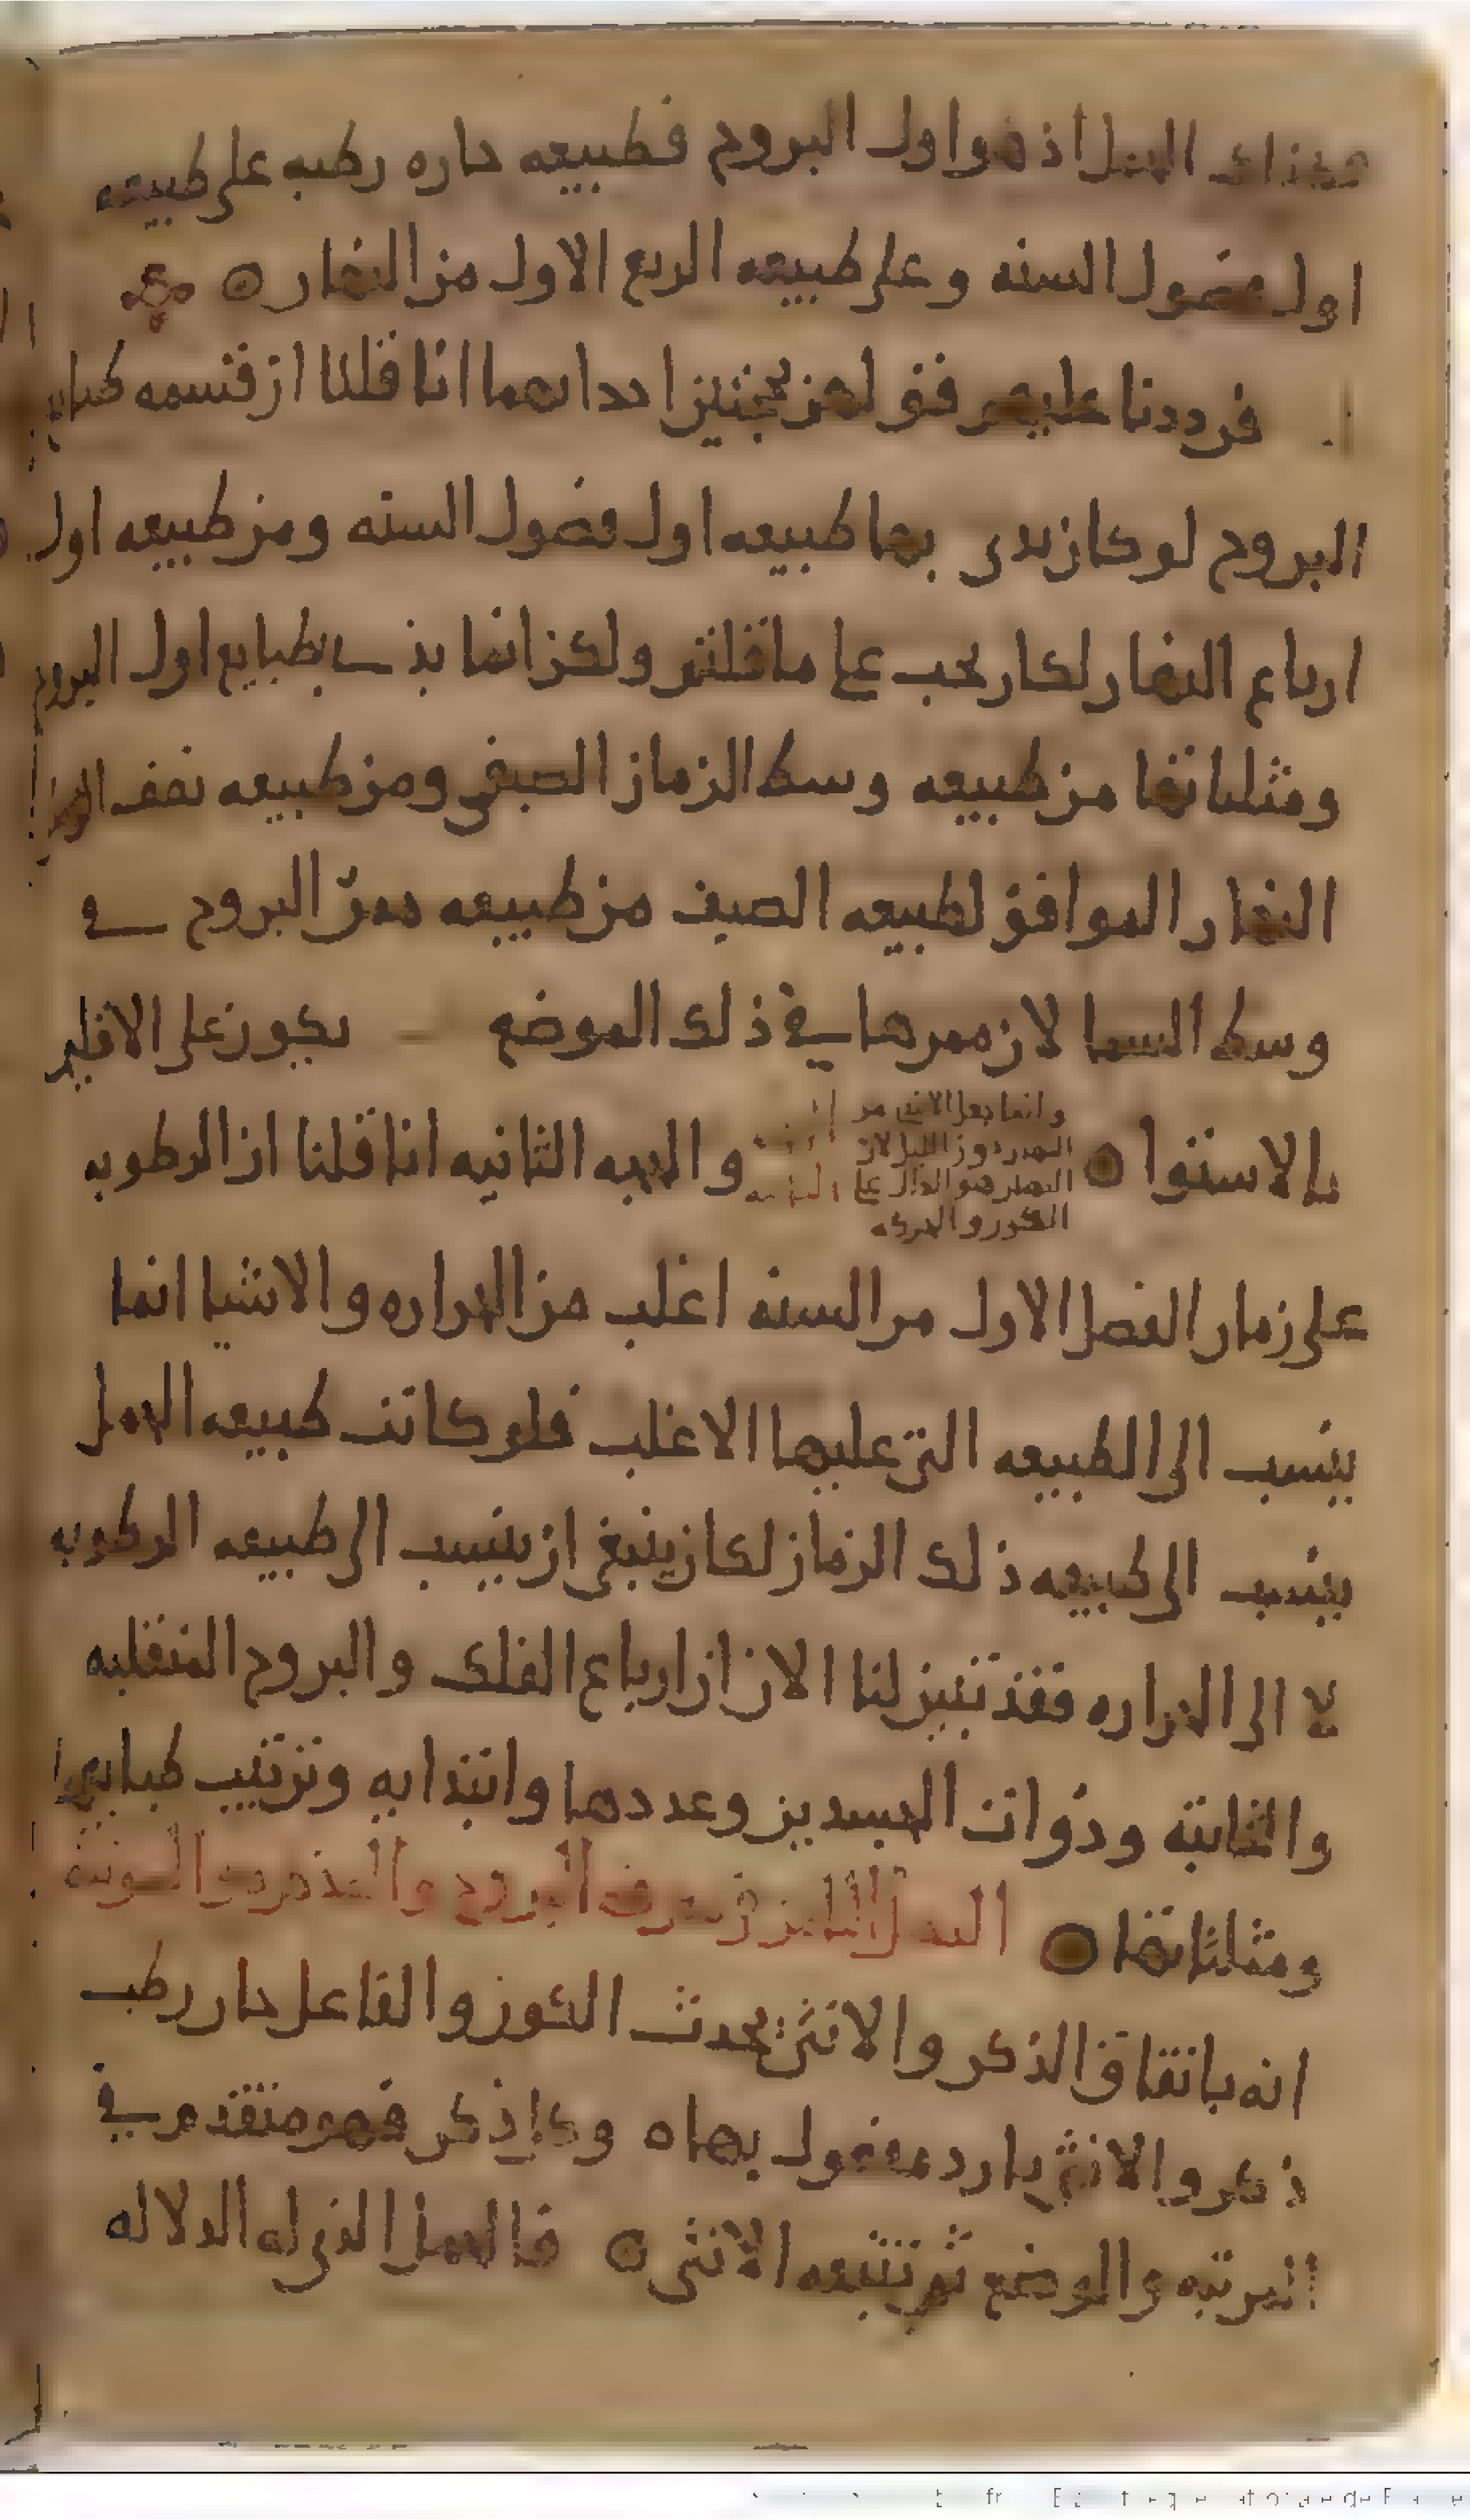 الحمل اذ هو اول البروج فطبيعه حاره رطبه على طبيعه
اول فصول السنه وعلى طبيعه الربع الاول من النهار ○
فرددنا عليهم قولهم بحجتين احداهما انا قلنا ان قسمه طبايع
البروج لو كان بدى بها طبيعه اول فصول السنه ومن طبيعه اول
ارباع النهار لكان يجب على ما قلتم ولكن انما بدى بطبايع اول البروج
ومثلثاتها من طبيعه وسط الزمان الصيفى ومن طبيعه نصف
النهار الموافق لطبيعه الصيف من طبيعه ممرّ البروج فى
وسط السما لان ممرها فى ذلك الموضع يكون على الاقليم
بالاستوا ○ والحجه الثانيه انا قلنا ان الرطوبه
وانما جعل الابتدى من
النهار دون الليل لان
النهار هو الدال على
الكون والحركه
على زمان الفصل الاول من السنه اغلب من الحراره والاشيا انما
ينسب الى الطبيعه التى عليها الاغلب فلو كانت طبيعه الحمل
ينسب الى طبيعه ذلك الزمان لكان ينبغى ان ينسب الى طبيعه الرطوبه
لا الى الحراره فقد تبين لنا الان ان ارباع الفلك والبروج المنقلبه
والثابته وذوات الجسدين وعددها وابتدايه وترتيب طبايعها
ومثلثاتها ○ الفصل الثامن فى معرفه البروج المذكره والمونثه
انه باتفاق الذكر والانثى يحدث الكون والفاعل حار رطب
ذكر والانثى بارد مفعول بها ○ وكل ذكر فهو متقدم فى
المرتبه والوضع ثم تتبعه الانثى ○ فالحمل الذى له الدلاله